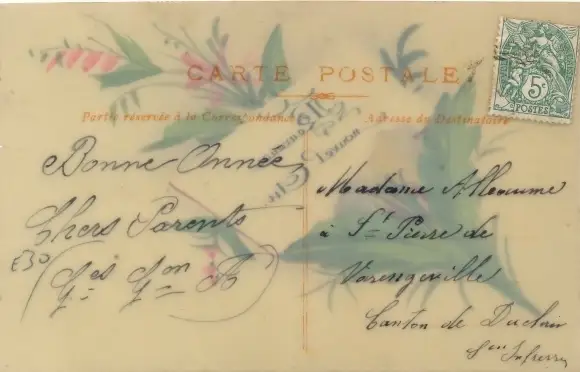 CARTE POSTALE
Partie réservée à la Correspondance
Adresse du Destinataire
5c
POSTES
Bonne Année
Chers Parents
E30
Madame Alleaume
à St Pierre de
Varengeville
Canton de Duclair
Sne Inferre